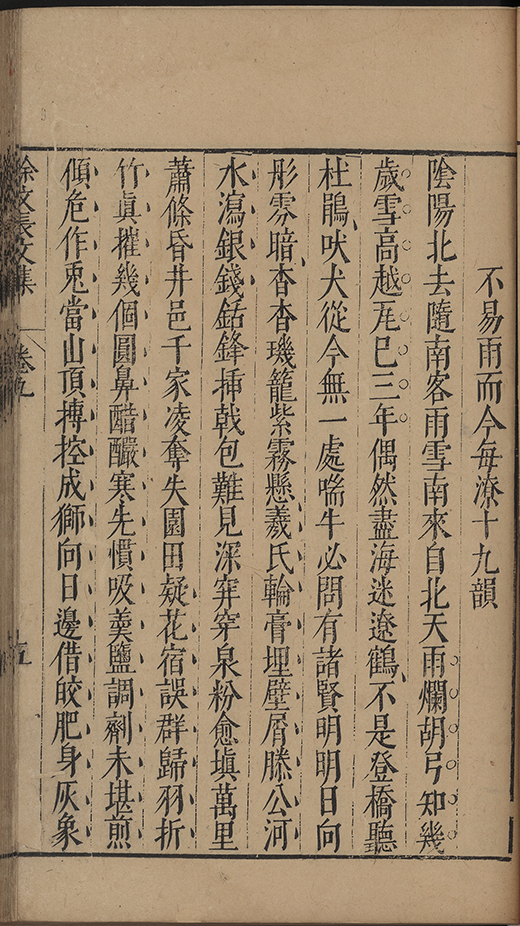 不易雨而今每潦十九韻
陰陽北去隨南客雨雪南來自北天雨爛胡弓知幾
歲雪高越厐巳三年偶然盡海迷遼鶴不是登橋聽
杜鵑吠犬從今無一處喘牛必問有諸賢明明日向
彤雰暗杳杳璣籠紫霧懸羲氏輪膏埋壁屑滕公河
水瀉銀錢銛鋒揷戟包難見深穽穿泉粉愈塡萬里
蕭條昏井邑千家凌奪失園田疑花宿誤群歸羽折
竹眞摧幾個圓鼻醋釅寒先慣吸羹鹽調劑未堪煎
傾危作兎當山頂摶控成獅向日邊借皎肥身灰象
徐文長文集 卷九 十五